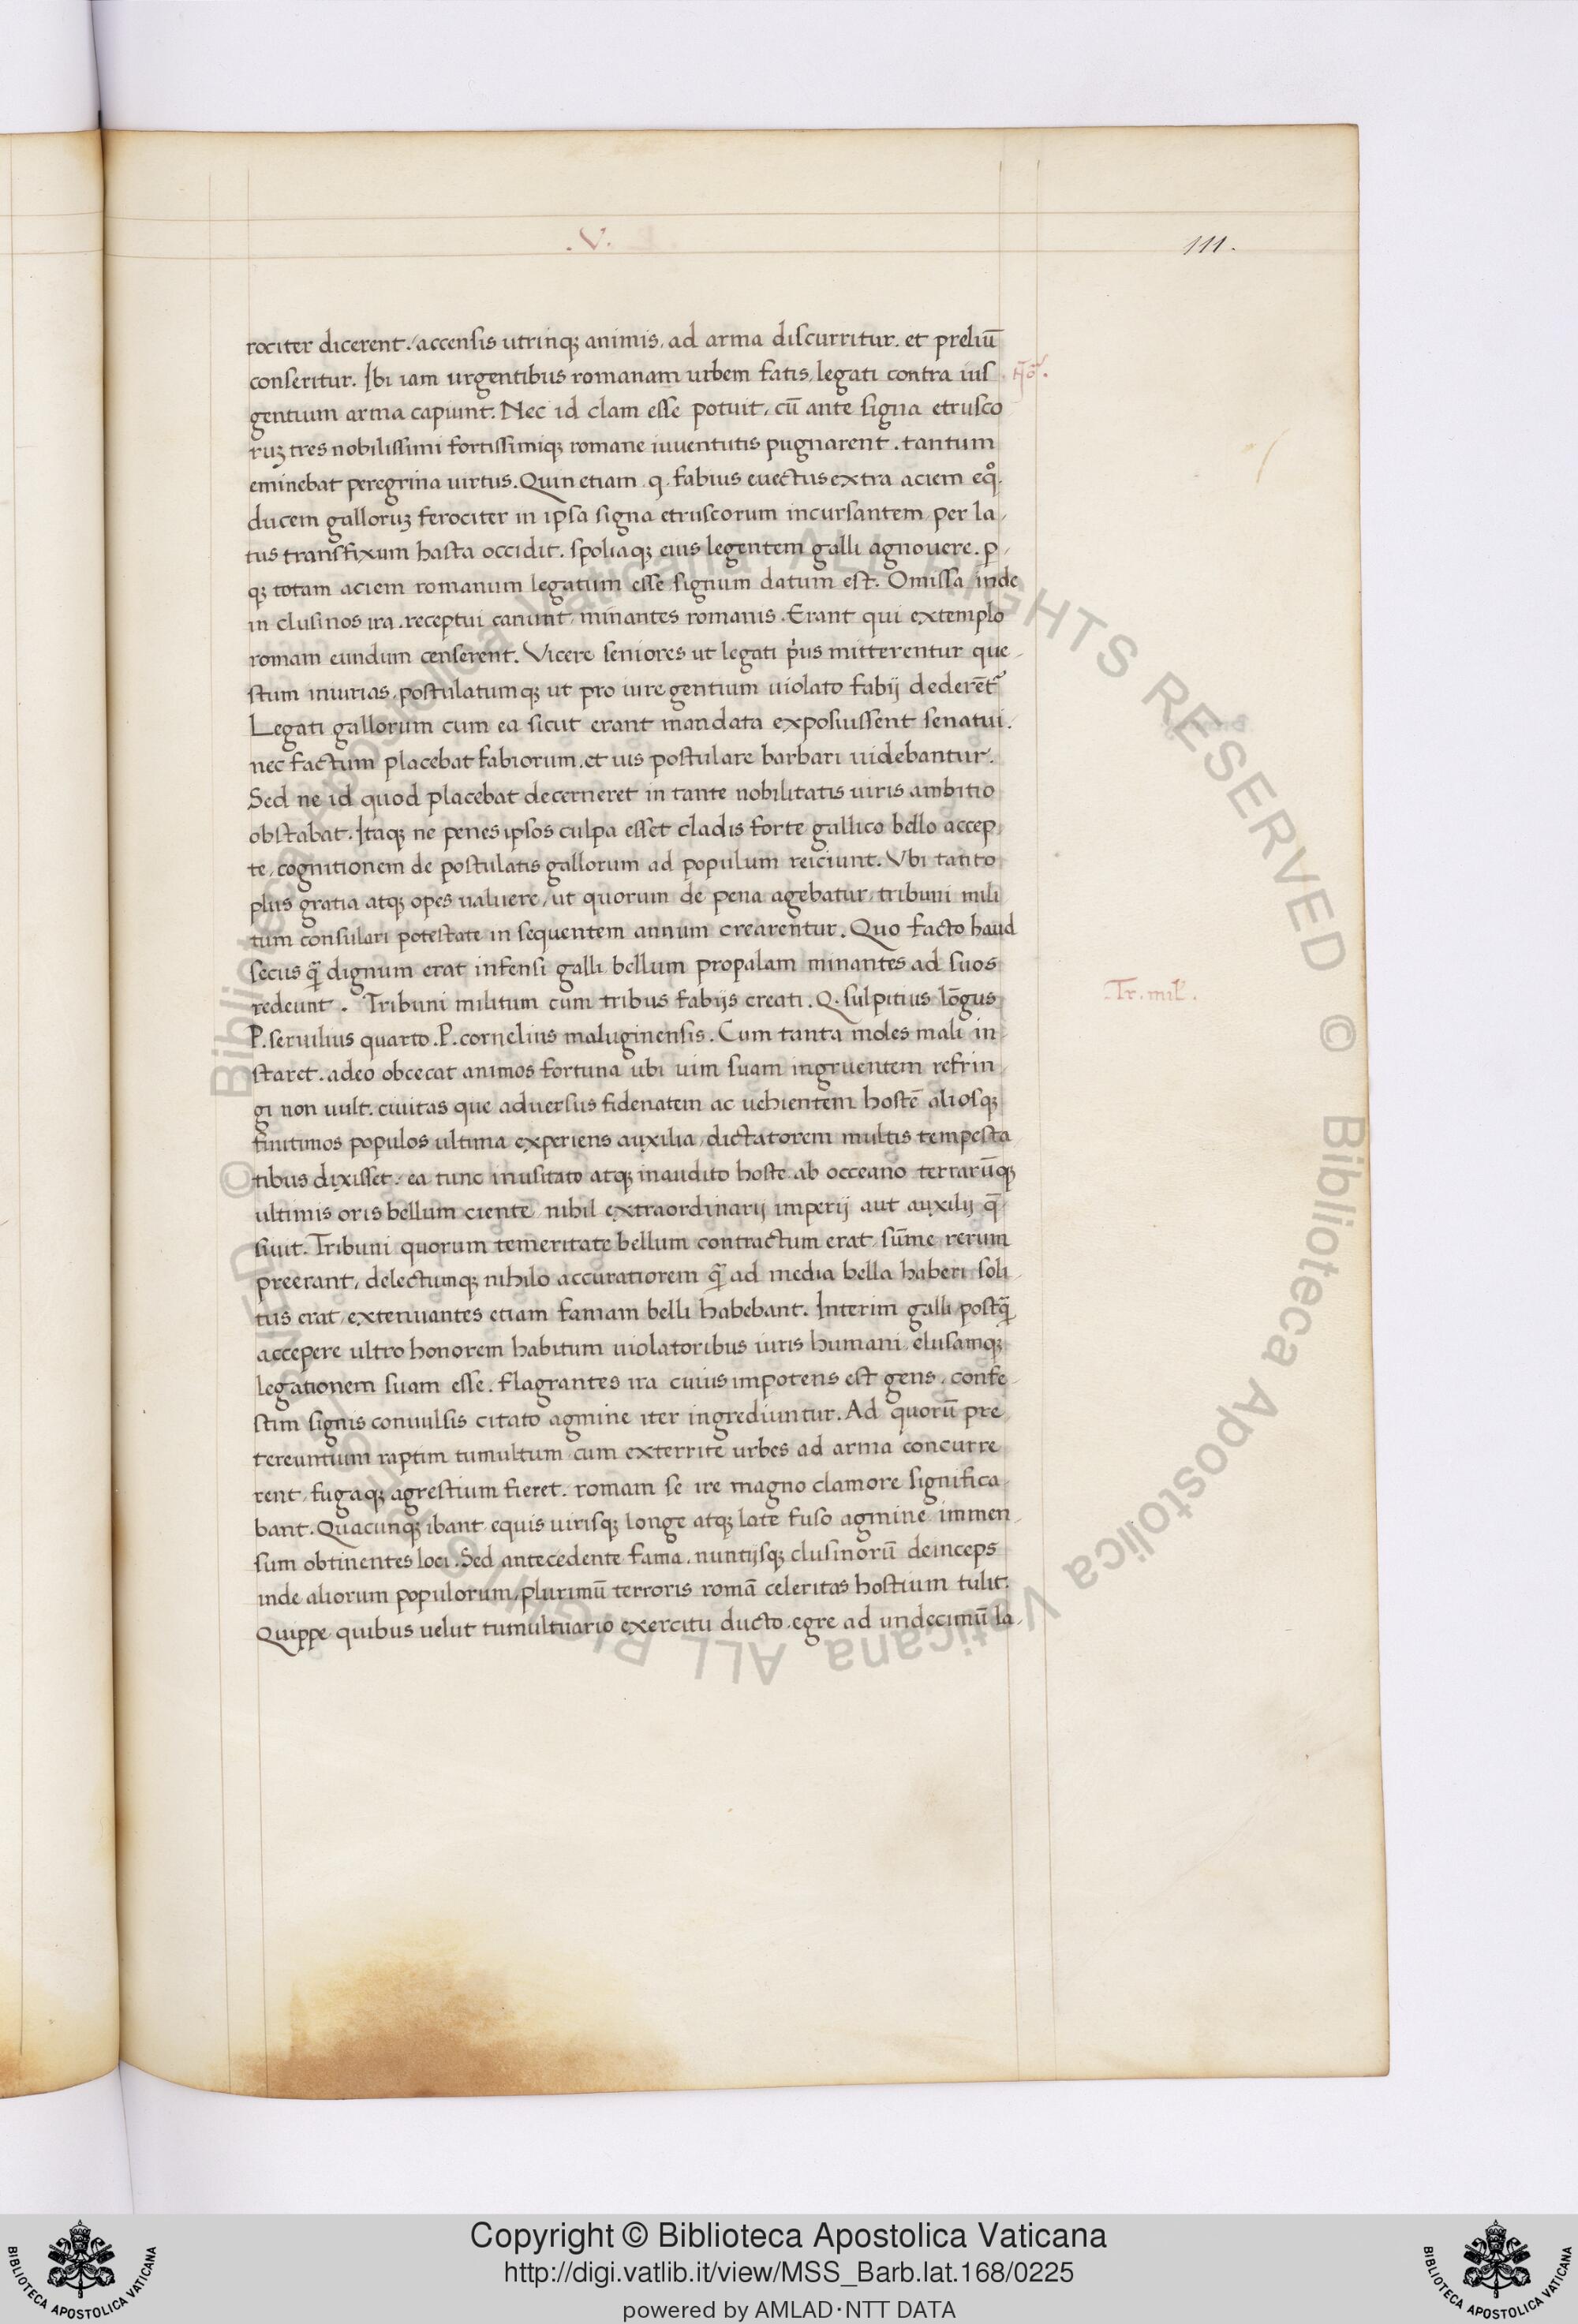 .V.
111.
rociter dicerent. accensis utrinqꝫ animis, ad arma discurritur. et preliū
conseritur. Ibi iam urgentibus romanam urbem fatis, legati contra ius
gentium arma capiunt. Nec id clam esse potuit, cū ante signa etrusco
ruꝫ tres nobilissimi fortissimiqꝫ romane iuventutis pugnarent. tantum
eminebat peregrina uirtus. Quin etiam .q. fabius euectus extra aciem eqͦ.
ducem galloruꝫ ferociter in ipsa signa etruscorum incursantem, per la,
tus transfixum hasta occidit. spoliaqꝫ eius legentem galli agnouere. ꝑ,
qꝫ totam aciem romanum legatum esse signum datum est. Omissa inde
in clusinos ira. receptui canunt, minantes romanis. Erant qui extemplo
romam eundum censerent. Vicere seniores ut legati pͥus mitterentur que,
stum iniurias, postulatumqꝫ ut pro iure gentium uiolato fabij dederēt᷑
Legati gallorum cum ea sicut erant mandata exposuissent senatui.
nec factum placebat fabiorum. et ius postulare barbari uidebantur.
Sed ne id quod placebat decerneret in tante nobilitatis uiris ambitio
obstabat. Itaqꝫ ne penes ipsos culpa esset cladis forte gallico bello accep,
te, cognitionem de postulatis gallorum ad populum reiciunt. Vbi tanto
plus gratia atqꝫ opes ualuere, ut quorum de pena agebatur, tribuni mili
tum consulari potestate in sequentem annum crearentur. Quo facto haud
secus qᷓ dignum erat infensi galli bellum propalam minantes ad suos
redeunt. Tribuni militum cum tribus fabijs creati. Q. sulpitius lōgus
P. seruilius quarto. P. cornelius maluginensis. Cum tanta moles mali in,
staret. adeo obcecat animos fortuna ubi uim suam ingruentem refrin,
gi non uult. ciuitas que aduersus fidenatem ac uehientem hostē aliosqꝫ
finitimos populos ultima experiens auxilia, dictatorem multis tempesta,
tibus dixisset. ea tunc inusitato atqꝫ inaudito hoste ab occeano terrarūqꝫ
ultimis oris bellum ciente, nihil extraordinarij imperij aut auxilij q̄,
siuit. Tribuni quorum temeritate bellum contractum erat, sūme rerum
preerant, delectumqꝫ nihilo accuratiorem qᷓ ad media bella haberi soli,
tus erat, extenuantes etiam famam belli habebant. Interim galli, postqᷓ
accepere ultro honorem habitum uiolatoribus iuris humani, elusamqꝫ
legationem suam esse. flagrantes ira cuius impotens est gens. confe,
stim signis conuulsis citato agmine iter ingrediuntur. Ad quorū pre,
tereuntium raptim tumultum cum exterrite urbes ad arma concurre,
rent, fugaqꝫ agrestium fieret. romam se ire magno clamore significa,
bant. Quacunqꝫ ibant, equis uirisqꝫ longe atqꝫ late fuso agmine immen,
sum obtinentes loci. Sed antecedente fama, nuntijsqꝫ clusinorū deinceps
inde aliorum populorum, plurimū terroris romā celeritas hostium tulit.
Quippe quibus uelut tumultuario exercitu ducto, egre ad undecimū la,
Tr. mil.
© Biblioteca Apostolica Vaticana ALL RIGHTS RESERVED © Biblioteca Apostolica Vaticana ALL RIGHTS RESERVED
Copyright © Biblioteca Apostolica Vaticana
http://digi.vatlib.it/view/MSS_Barb.lat.168/0225
powered by AMLAD·NTT DATA
BIBLIOTECA APOSTOLICA VATICANA
BIBLIOTECA APOSTOLICA VATICANA